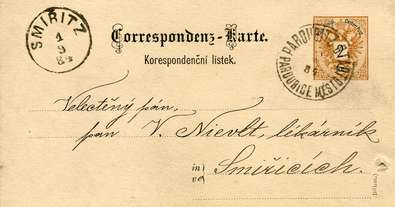 SMIŘITZ
1
9
84
Correspondenz-Karte.
Korespondenční lístek.
PARDUBICE MĚSTO
2
Velectěný pán,
pan V. Nievolt, lékárník
in
ve
Smiřicích.